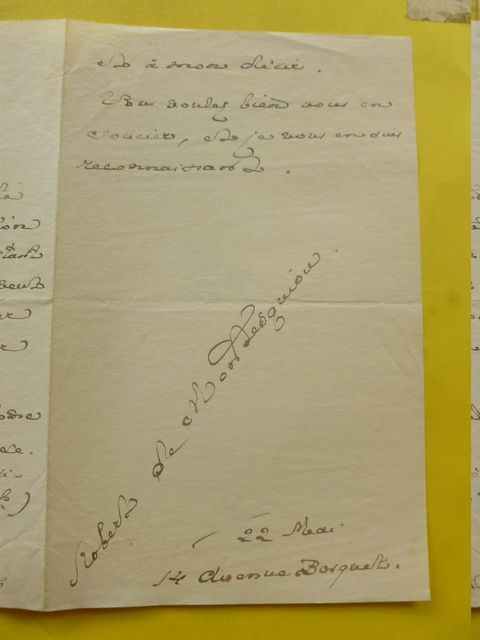 et à mon désir.
Vous voulez bien vous en
soucier, et je vous en suis
reconnaissant.
Robert de Montesquiou.
22 Mai.
14 Avenue Bosquet.